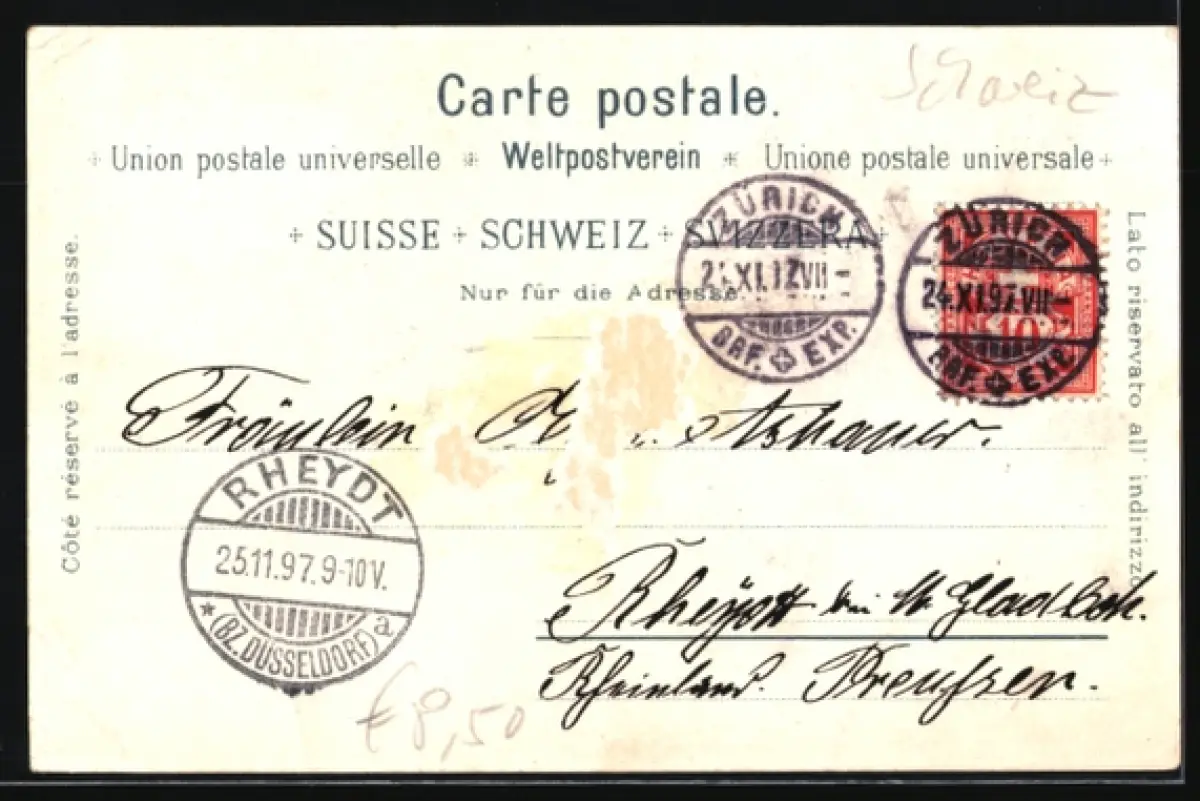 Schweiz
Carte postale.
Union postale universelle * Weltpostverein * Unione postale universale
SUISSE + SCHWEIZ + SVIZZERA
Nur für die Adresse.
Côté réservé à l'adresse.
Lato riservato all' indirizzo
ZÜRICH
24.XI.97.VII-
BRF. EXP.
ZÜRICH
24.XI.97.VII-
BRF. EXP.
10
Fräulein
RHEYDT
25.11.97.9-10V.
* (BZ. DÜSSELDORF) a
Rheydt bei M. Gladbach.
Rheinland. Preußen.
€8,50